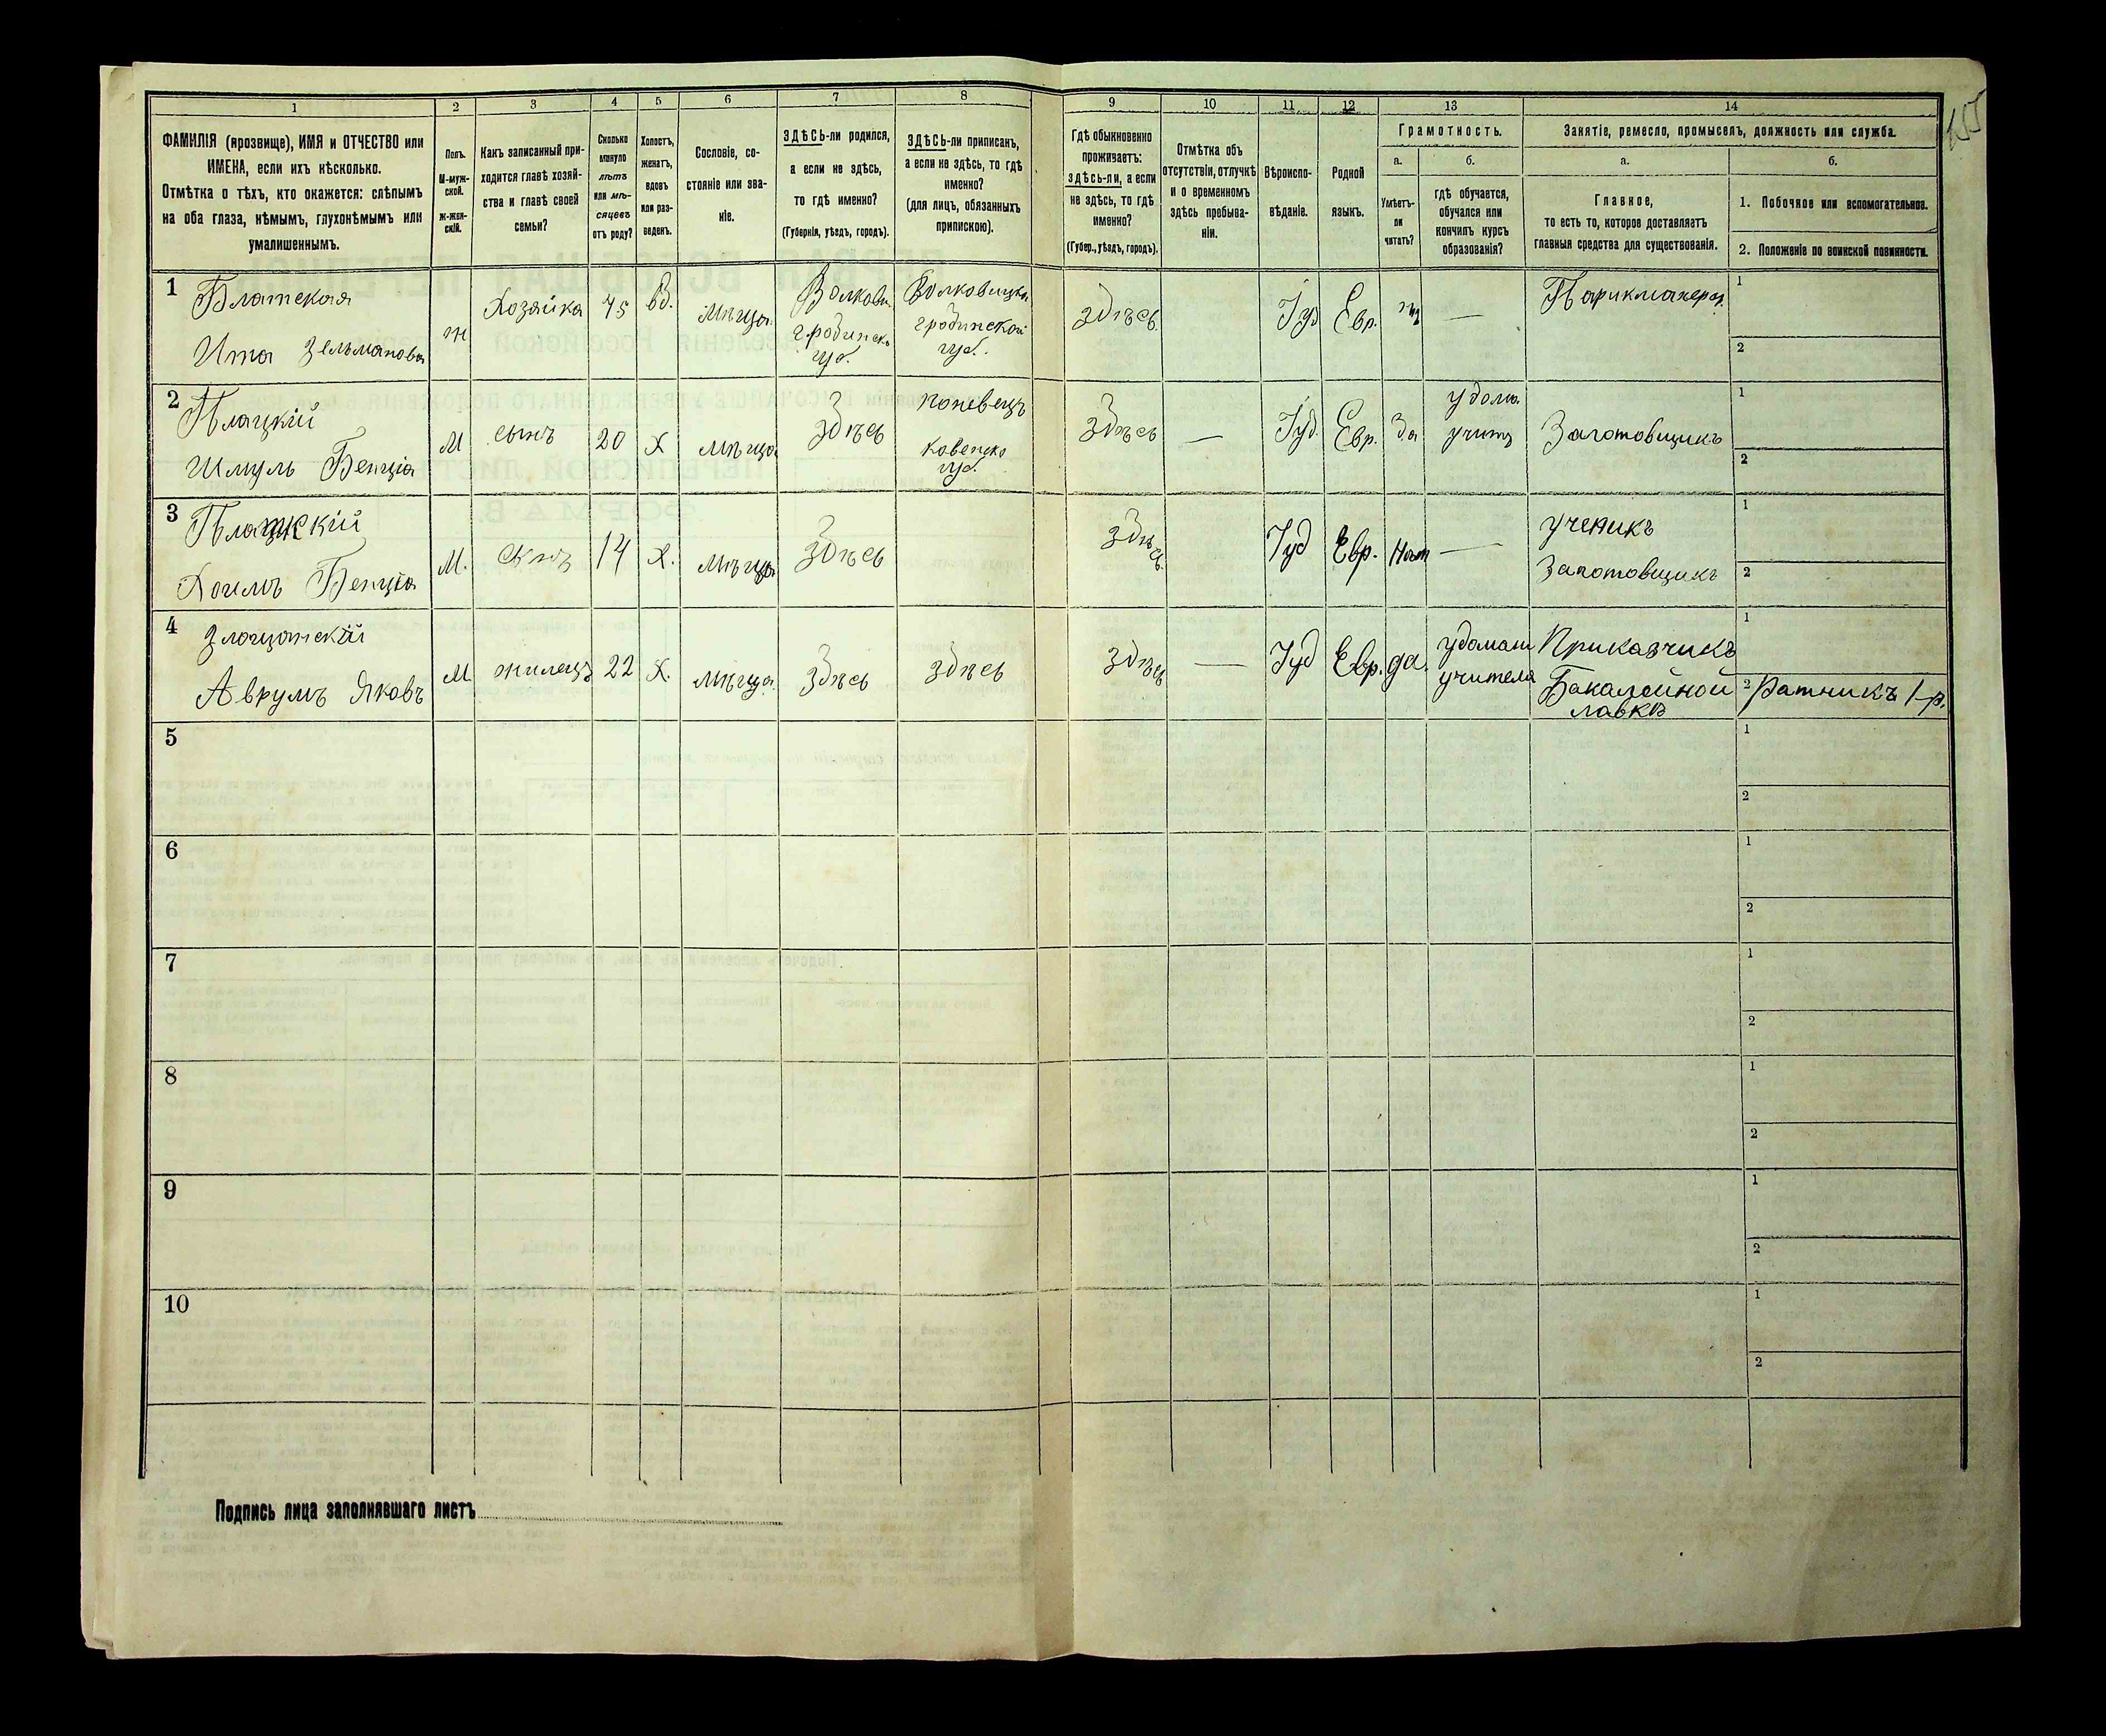 155
1 2 3 4 5 6 7 8 9 10 11 12 13 14
ФАМИЛІЯ (прозвище), ИМЯ и ОТЧЕСТВО или
ИМЕНА, если ихъ нѣсколько.
Отмѣтка о тѣхъ, кто окажется: слѣпымъ
на оба глаза, нѣмымъ, глухонѣмымъ или
умалишеннымъ.
Полъ.
М-муж-
ской.
Ж-жен-
скій.
Какъ записанный при-
ходится главѣ хозяй-
ства и главѣ своей
семьи?
Сколько
минуло
лѣтъ
или мѣ-
сяцевъ
отъ роду?
Холостъ,
женатъ,
вдовъ
или раз-
веденъ.
Сословіе, со-
стояніе или зва-
ніе.
ЗДѢСЬ-ли родился,
а если не здѣсь,
то гдѣ именно?
(Губернія, уѣздъ, городъ).
ЗДѢСЬ-ли приписанъ,
а если не здѣсь, то гдѣ
именно?
(для лицъ, обязанныхъ
припискою).
Гдѣ обыкновенно
проживаетъ:
здѣсь-ли, а если
не здѣсь, то гдѣ
именно?
(Губер., уѣздъ, городъ).
Отмѣтка объ
отсутствіи, отлучкѣ
и о временномъ
здѣсь пребыва-
ніи.
Вѣроиспо-
вѣданіе.
Родной
языкъ.
Грамотность.
а.
Умѣетъ-
ли
читать?
б.
гдѣ обучается,
обучался или
кончилъ курсъ
образованія?
Занятіе, ремесло, промыселъ, должность или служба.
а.
Главное,
то есть то, которое доставляетъ
главныя средства для существованія.
б.
1. Побочное или вспомогательное.
2. Положеніе по воинской повинности.
1
Блатская
Ита Зельманова
ж
Хозяйка
45
вд.
Мѣща.
Волкови.
гродненск.
губ.
Волковицка
гродненской
губ.
здѣсь
Іуд
Евр.
—
Парикмахера
1
2
2
Плацкій
Шмуль Бенціа
М
сынъ
20
Х
мѣща
Здѣсь
поневецъ
Ковенско
губ.
Здѣсь
—
Іуд.
Евр.
Да
у дома.
учит
Заготовщикъ
1
2
3
Плацкій
Хоимъ Бенціа
М.
сынъ
14
Х.
мѣща
Здѣсь
здѣсь
Іуд
Евр.
Нат
—
ученикъ
Заготовщикъ
1
2
4
Злоцотскій
Аврумъ Яковъ
М
жилецъ
22
Х.
мѣща.
Здѣсь
здѣсь
здѣсь
—
Іуд
Евр.
да.
удомаш
учителя
Приказчикъ
Бакалейной
лавкѣ
1
2 Ратникъ 1-р.
5
1
2
6
1
2
7
1
2
8
1
2
9
1
2
10
1
2
Подпись лица заполнявшаго листъ